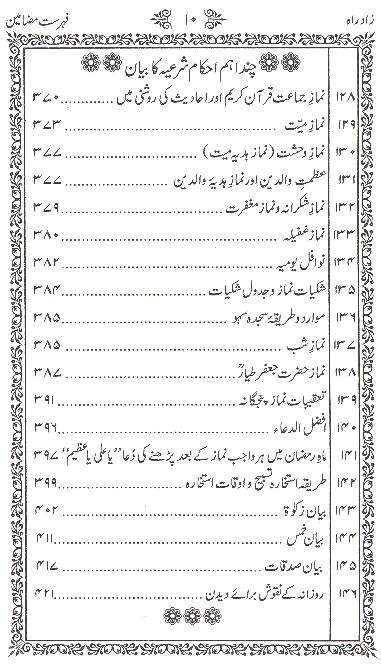 زادراہ ۱۰ فہرست مضامین
چند اہم احکام شرعیہ کا بیان
۱۲۸ نمازِ جماعت قرآن کریم اور احادیث کی روشنی میں ............ ۳۷۰
۱۲۹ نمازِ میّت ............ ۳۷۳
۱۳۰ نمازِ وحشت (نماز ہدیہ میت) ............ ۳۷۷
۱۳۱ عظمتِ والدین اور نمازِ ہدیۂ والدین ............ ۳۷۷
۱۳۲ نمازِ شکرانہ و نماز مغفرت ............ ۳۷۹
۱۳۳ نمازِ غفیلہ ............ ۳۸۰
۱۳۴ نوافل یومیہ ............ ۳۸۲
۱۳۵ شکیات نماز و جدول شکیات ............ ۳۸۴
۱۳۶ موارد و طریقۂ سجدہ سہو ............ ۳۸۵
۱۳۷ نمازِ شب ............ ۳۸۵
۱۳۸ نماز حضرت جعفر طیارؑ ............ ۳۸۷
۱۳۹ تعقیبات نماز پنجگانہ ............ ۳۹۱
۱۴۰ افضل الدعاء ............ ۳۹۶
۱۴۱ ماہِ رمضان میں ہر واجب نماز کے بعد پڑھنے کی دُعا ”یا علی یا عظیم“ ۳۹۷
۱۴۲ طریقہ استخارہ تسبیح و اوقات استخارہ ............ ۳۹۹
۱۴۳ بیان زکوۃ ............ ۴۰۲
۱۴۴ بیان خمس ............ ۴۱۱
۱۴۵ بیان صدقات ............ ۴۱۷
۱۴۶ روزانہ کے نقوش برائے دیدن ............ ۴۲۱